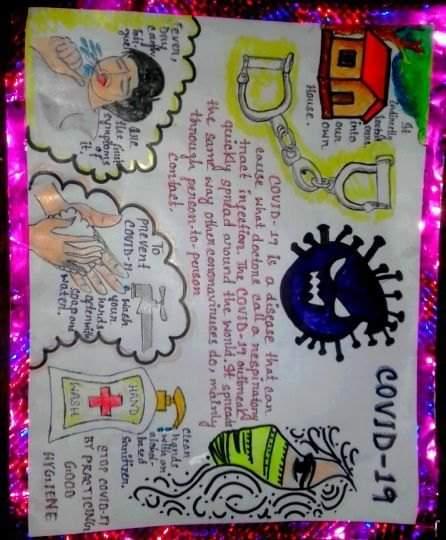 COVID-19
It
Indirectly
locked humans
into
our
own
House.
COVID-19 is a disease that can
cause what doctors call a respiratory
tract infection. The COVID-19 outbreak
quickly spread around the world. It spreads
the same way other coronaviruses do, mainly
through person-to-person
contact.
Fever,
Dry
cough
fati-
gue
are
the first
symptoms
of
it.
To
prevent
COVID-19
wash
your
hands
often with
soap and
water.
HAND
WASH
Clean
hands
with an
alcohol
based
Sanitizer.
STOP COVID-19
BY PRACTICING
GOOD
HYGIENE